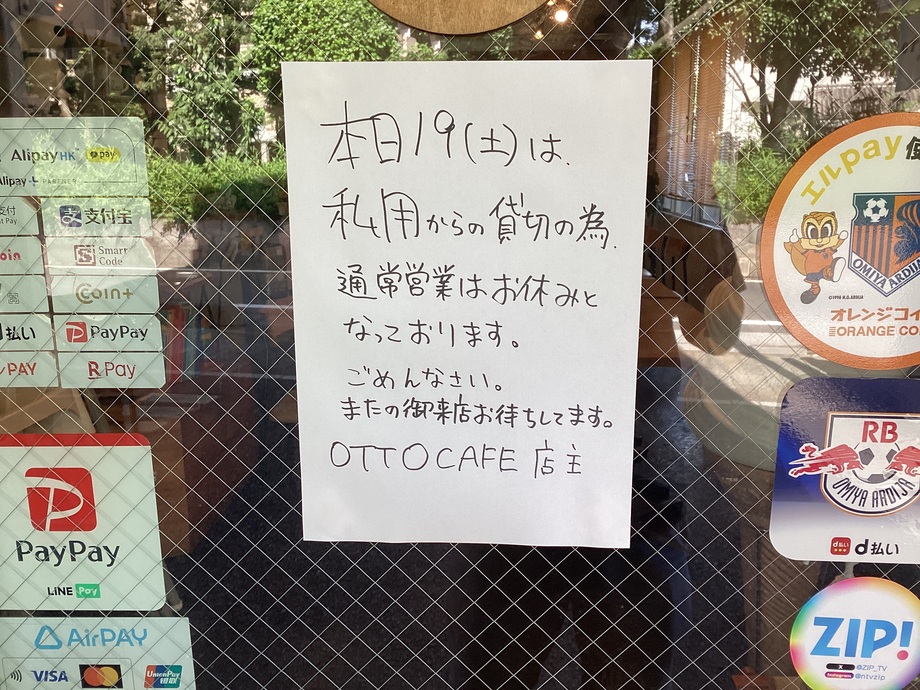 本日19(土)は、
私用からの貸切の為、
通常営業はお休みと
なっております。
ごめんなさい。
またの御来店お待ちしてます。
OTTO CAFE 店主
AlipayHK pay
Alipay+ PARTNERS
支付 支付宝
Pay
oin Smart Code
Coin+
払い PayPay
PAY R Pay
PayPay
LINE Pay
AirPAY
VISA UnionPay 银联
エルpay 使
OMIYA ARDIJA
オレンジコイ
ORANGE CO
RB
OMIYA ARDIJA
d払い d払い
ZIP!
X @ZIP_TV
Instagram @ntvzip